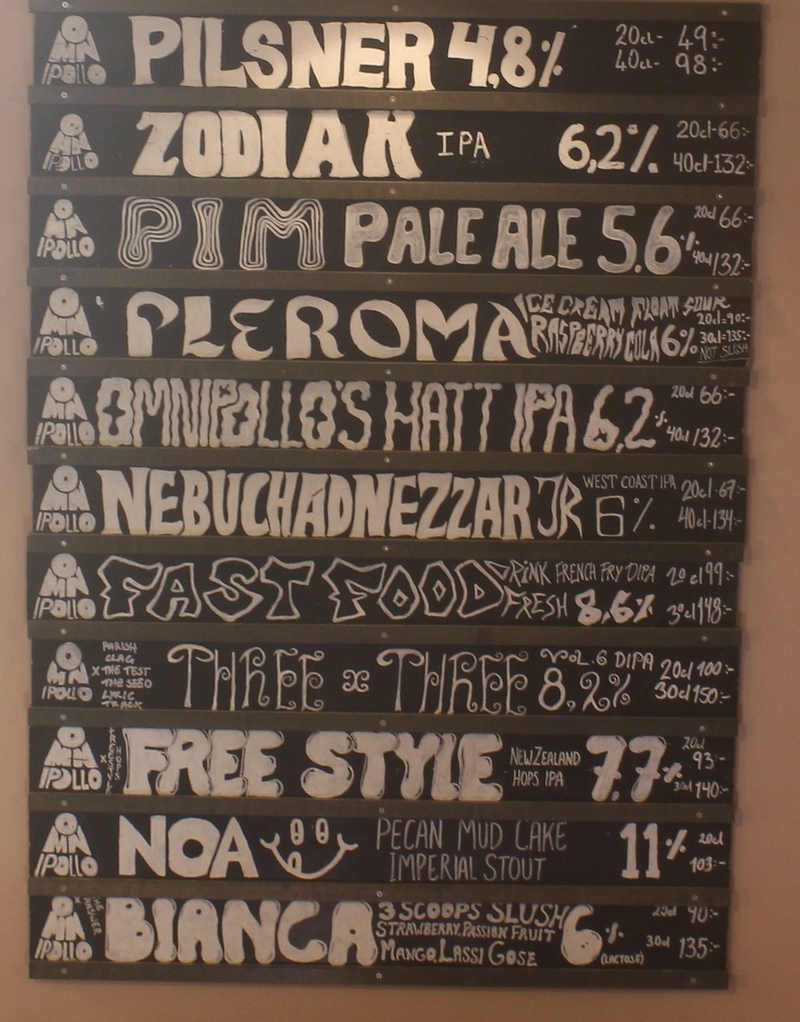 OMNIPOLLO PILSNER 4,8% 20cl- 49:-
40cl- 98:-
OMNIPOLLO ZODIAK IPA 6,2% 20cl-66:-
40cl-132:-
OMNIPOLLO PIM PALE ALE 5.6% 20cl 66:-
40cl 132:-
OMNIPOLLO PLEROMA ICE CREAM FLOAT SOUR
RASPBERRY COLA 6% 20cl=90:-
30cl=135:-
NOT SLUSH
OMNIPOLLO OMNIPOLLO'S HATT IPA 6,2% 20cl 66:-
40cl 132:-
OMNIPOLLO NEBUCHADNEZZAR JR WEST COAST IPA 6% 20cl-67:-
40cl-134:-
OMNIPOLLO FAST FOOD DRINK FRENCH FRY DIPA 20cl 99:-
FRESH 8,6% 30cl 148:-
OMNIPOLLO
PARISH
CLAG
X THE TEST
THE SEED
LYRIC
TRACK
THREE x THREE VOL.6 DIPA 8,2% 20cl 100:-
30cl 150:-
OMNIPOLLO X HOPS FREE STYLE NEW ZEALAND
HOPS IPA 7.7% 20cl
93:-
30cl 140:-
OMNIPOLLO NOA PECAN MUD CAKE
IMPERIAL STOUT 11% 20cl
103:-
OMNIPOLLO X THE ANSWER BIANCA 3 SCOOPS SLUSH
STRAWBERRY, PASSION FRUIT
MANGO, LASSI GOSE 6% (LACTOSE) 20cl 90:-
30cl 135:-